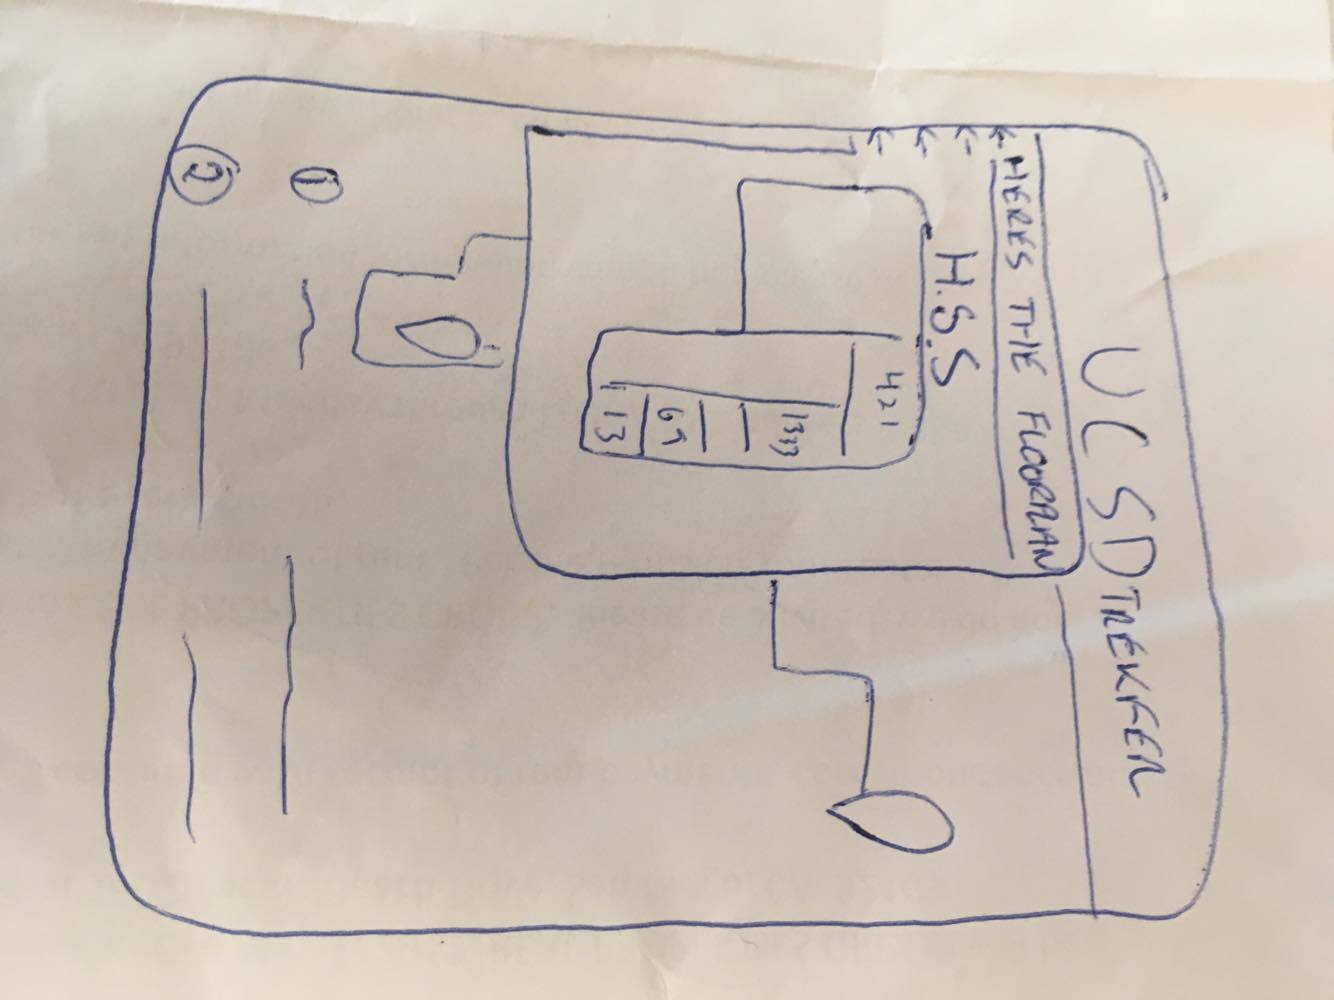 UCSD TREKKER
HERES THE FLOORPLAN
H.S.S
421
1333
69
13
1
2